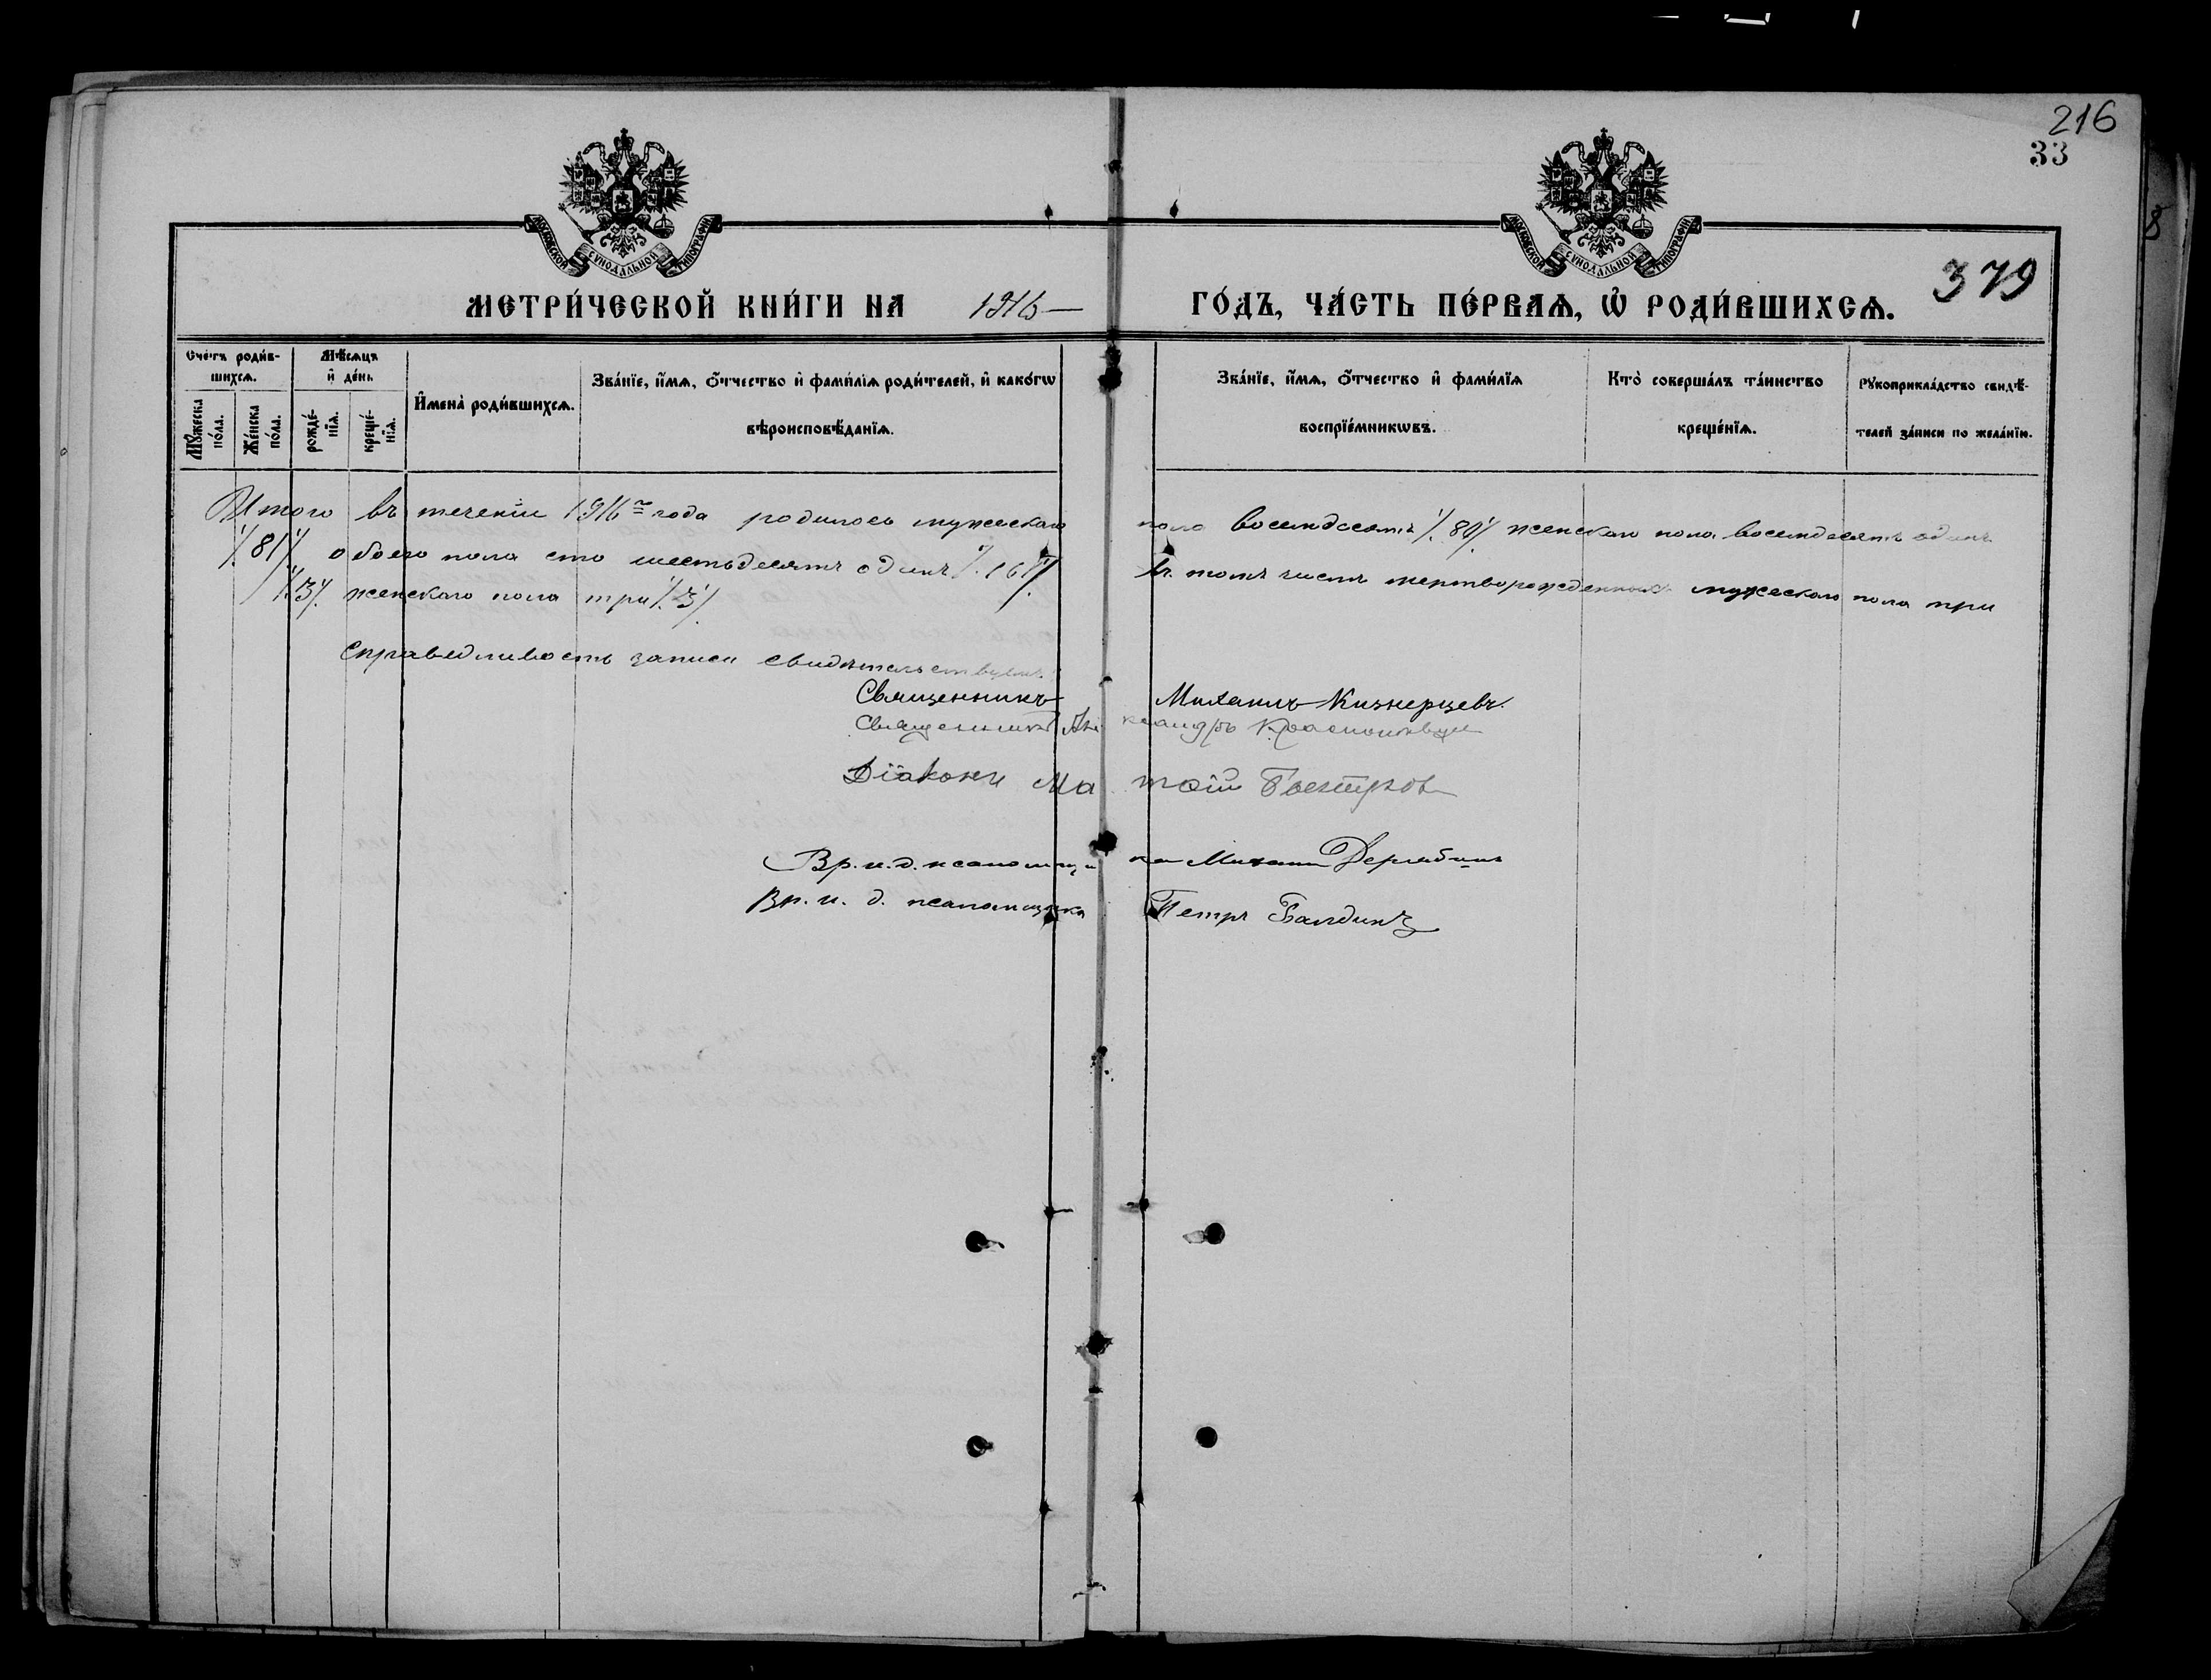 216
33
МОСКОВСКОЙ СУНОДАЛЬНОЙ ТИПОГРАФІИ
МОСКОВСКОЙ СУНОДАЛЬНОЙ ТИПОГРАФІИ
379
МЕТРИ́ЧЕСКОЙ КНИ́ГИ НА 1916 ГО́ДЪ, ЧА́СТЬ ПЕ́РВАѦ, Ѡ҆ РОДИ́ВШИХСѦ.
Сче́тъ роди́в-
шихсѧ.
Мѣ́сѧцъ
и҆ де́нь
Мꙋ́жеска
по́ла.
Же́нска
по́ла.
рожде́-
нїѧ.
креще́-
нїѧ.
И҆мена̀ роди́вшихсѧ.
Зва́нїе, и҆́мѧ, ѻ҆́тчество и҆ фами́лїѧ роди́телей, и҆ како́гѡ
вѣроисповѣ́данїѧ.
Зва́нїе, и҆́мѧ, ѻ҆́тчество и҆ фами́лїѧ
воспрїе́мникѡвъ.
Кто̀ соверша́лъ та́инство
креще́нїѧ.
Рꙋкоприкла́дство свидѣ́-
телей за́писи по жела́нїю.
Итого въ теченіи 1916 года родилось мужескаго пола восемдесятъ /.80./ женскаго пола восемдесятъ одинъ
/.81./ обоего пола сто шестьдесятъ одинъ /.161./ Въ томъ числѣ мертворожденныхъ мужескаго пола три
/.3./ женскаго пола три /.3./
Справедливость записи свидѣтельствуемъ:
Священникъ Михаилъ Кизнерцевъ.
Священникъ Александръ
Діаконъ Матѳій
Вр. и. д. псаломщика Михаил Дерябинъ
Вр. и. д. псаломщика Петръ Балдинъ